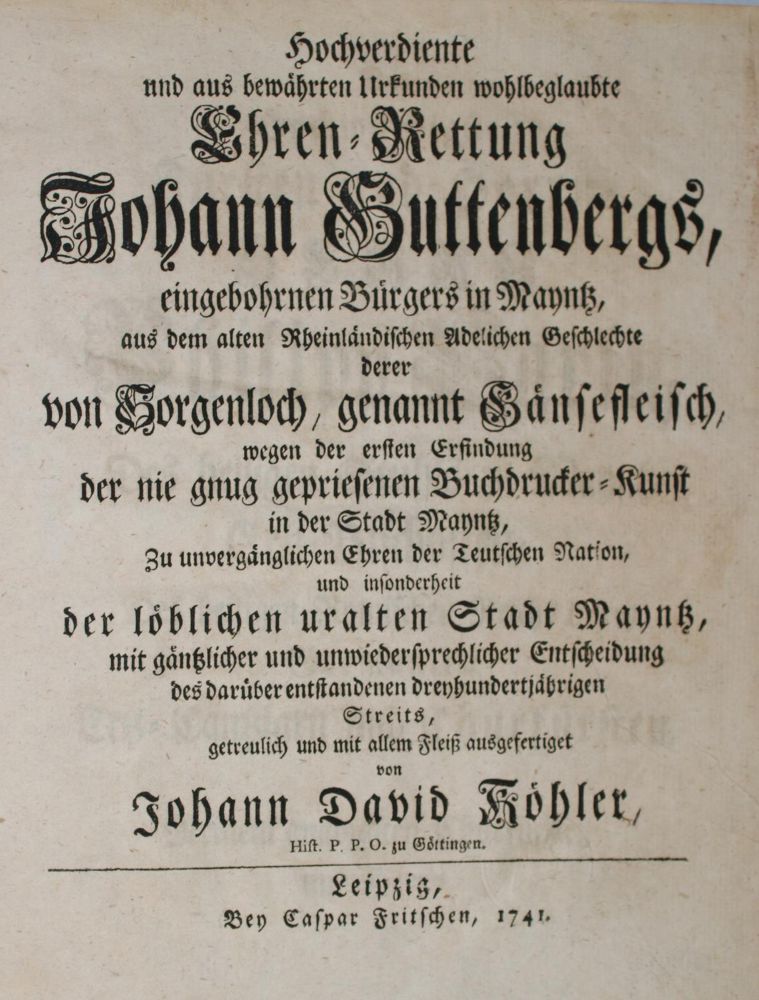 Hochverdiente
und aus bewährten Urkunden wohlbeglaubte
Ehren-Rettung
Johann Guttenbergs,
eingebohrnen Bürgers in Mayntz,
aus dem alten Rheinländischen Adelichen Geschlechte
derer
von Sorgenloch, genannt Gänsefleisch,
wegen der ersten Erfindung
der nie gnug gepriesenen Buchdrucker-Kunst
in der Stadt Mayntz,
Zu unvergänglichen Ehren der Teutschen Nation,
und insonderheit
der löblichen uralten Stadt Mayntz,
mit gäntzlicher und unwiedersprechlicher Entscheidung
des darüber entstandenen dreyhundertjährigen
Streits,
getreulich und mit allem Fleiß ausgefertiget
von
Johann David Köhler,
Hist. P. P. O. zu Göttingen.
Leipzig,
Bey Caspar Fritschen, 1741.